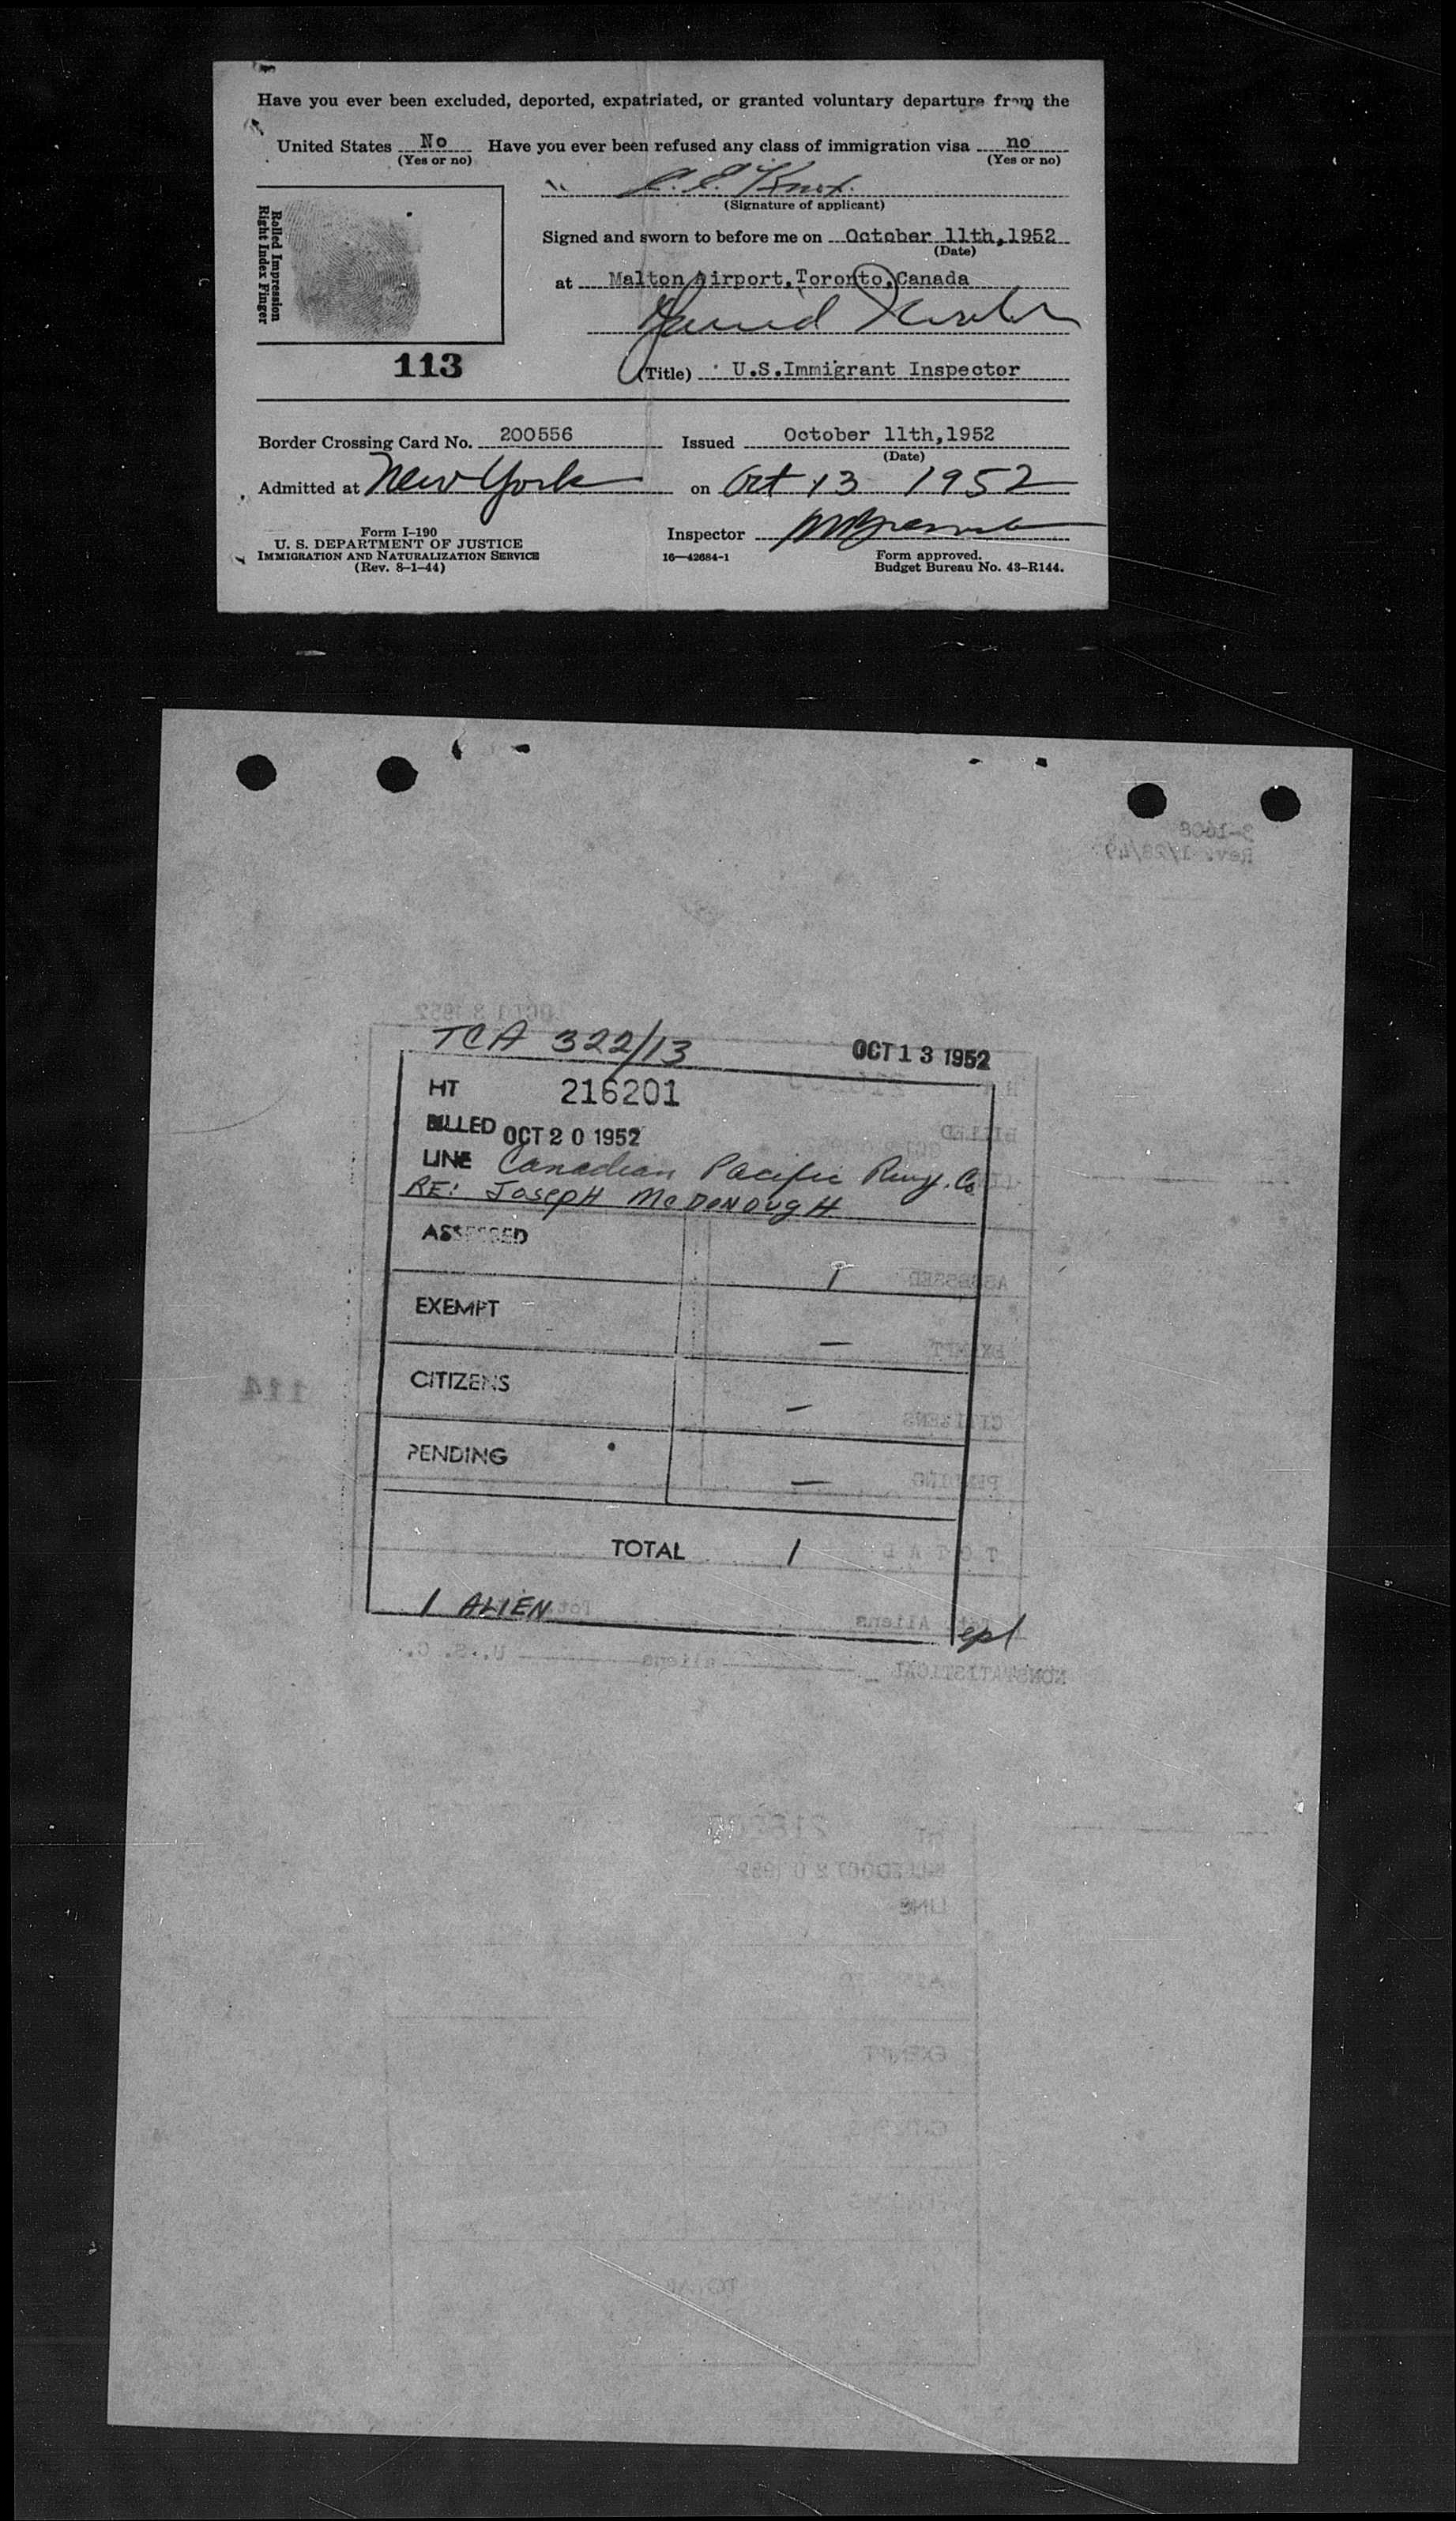 Have you ever been excluded, deported, expatriated, or granted voluntary departure from the
United States No Have you ever been refused any class of immigration visa no
(Yes or no) (Yes or no)
Rolled Impression
Right Index Finger
Knox.
(Signature of applicant)
Signed and sworn to before me on October 11th, 1952
(Date)
at Malton Airport, Toronto, Canada
113
(Title) U.S.Immigrant Inspector
Border Crossing Card No. 200556 Issued October 11th, 1952
(Date)
Admitted at New York on Oct 13 1952
Form I-190
U. S. DEPARTMENT OF JUSTICE
IMMIGRATION AND NATURALIZATION SERVICE
(Rev. 8-1-44)
Inspector
16—42684-1
Form approved.
Budget Bureau No. 43-R144.
3-1608
Rev. 1/28/49
TCA 322/13 OCT 13 1952
HT 216201
BILLED OCT 20 1952
LINE Canadian Pacific Rwy. Co
RE: JOSEPH McDONOUGH
ASSESSED 1
EXEMPT —
CITIZENS —
PENDING —
TOTAL 1
1 ALIEN
114